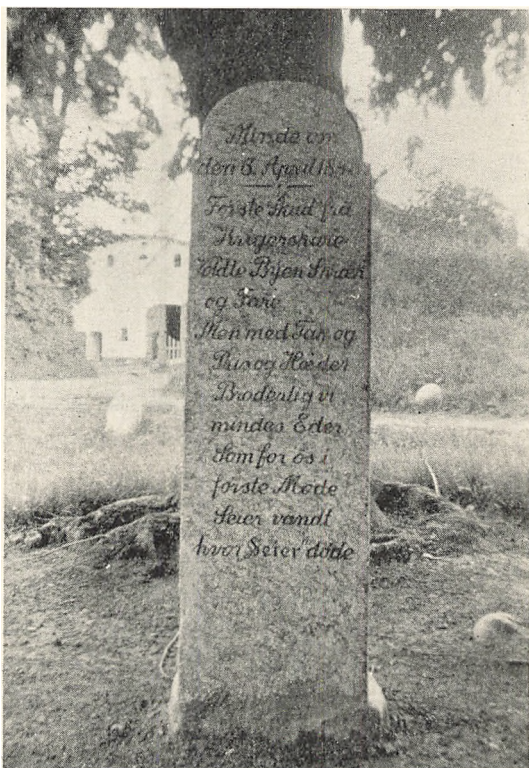 Minde om
den 6. April 18
Første Skud fra
Krigerskare
Voldte Byen Skræk
og Fare
Men med Tak og
Pris og Hæder
Broderlig vi
mindes Eder
Som for os i
første Møde
Seier vandt
hvor Seier døde